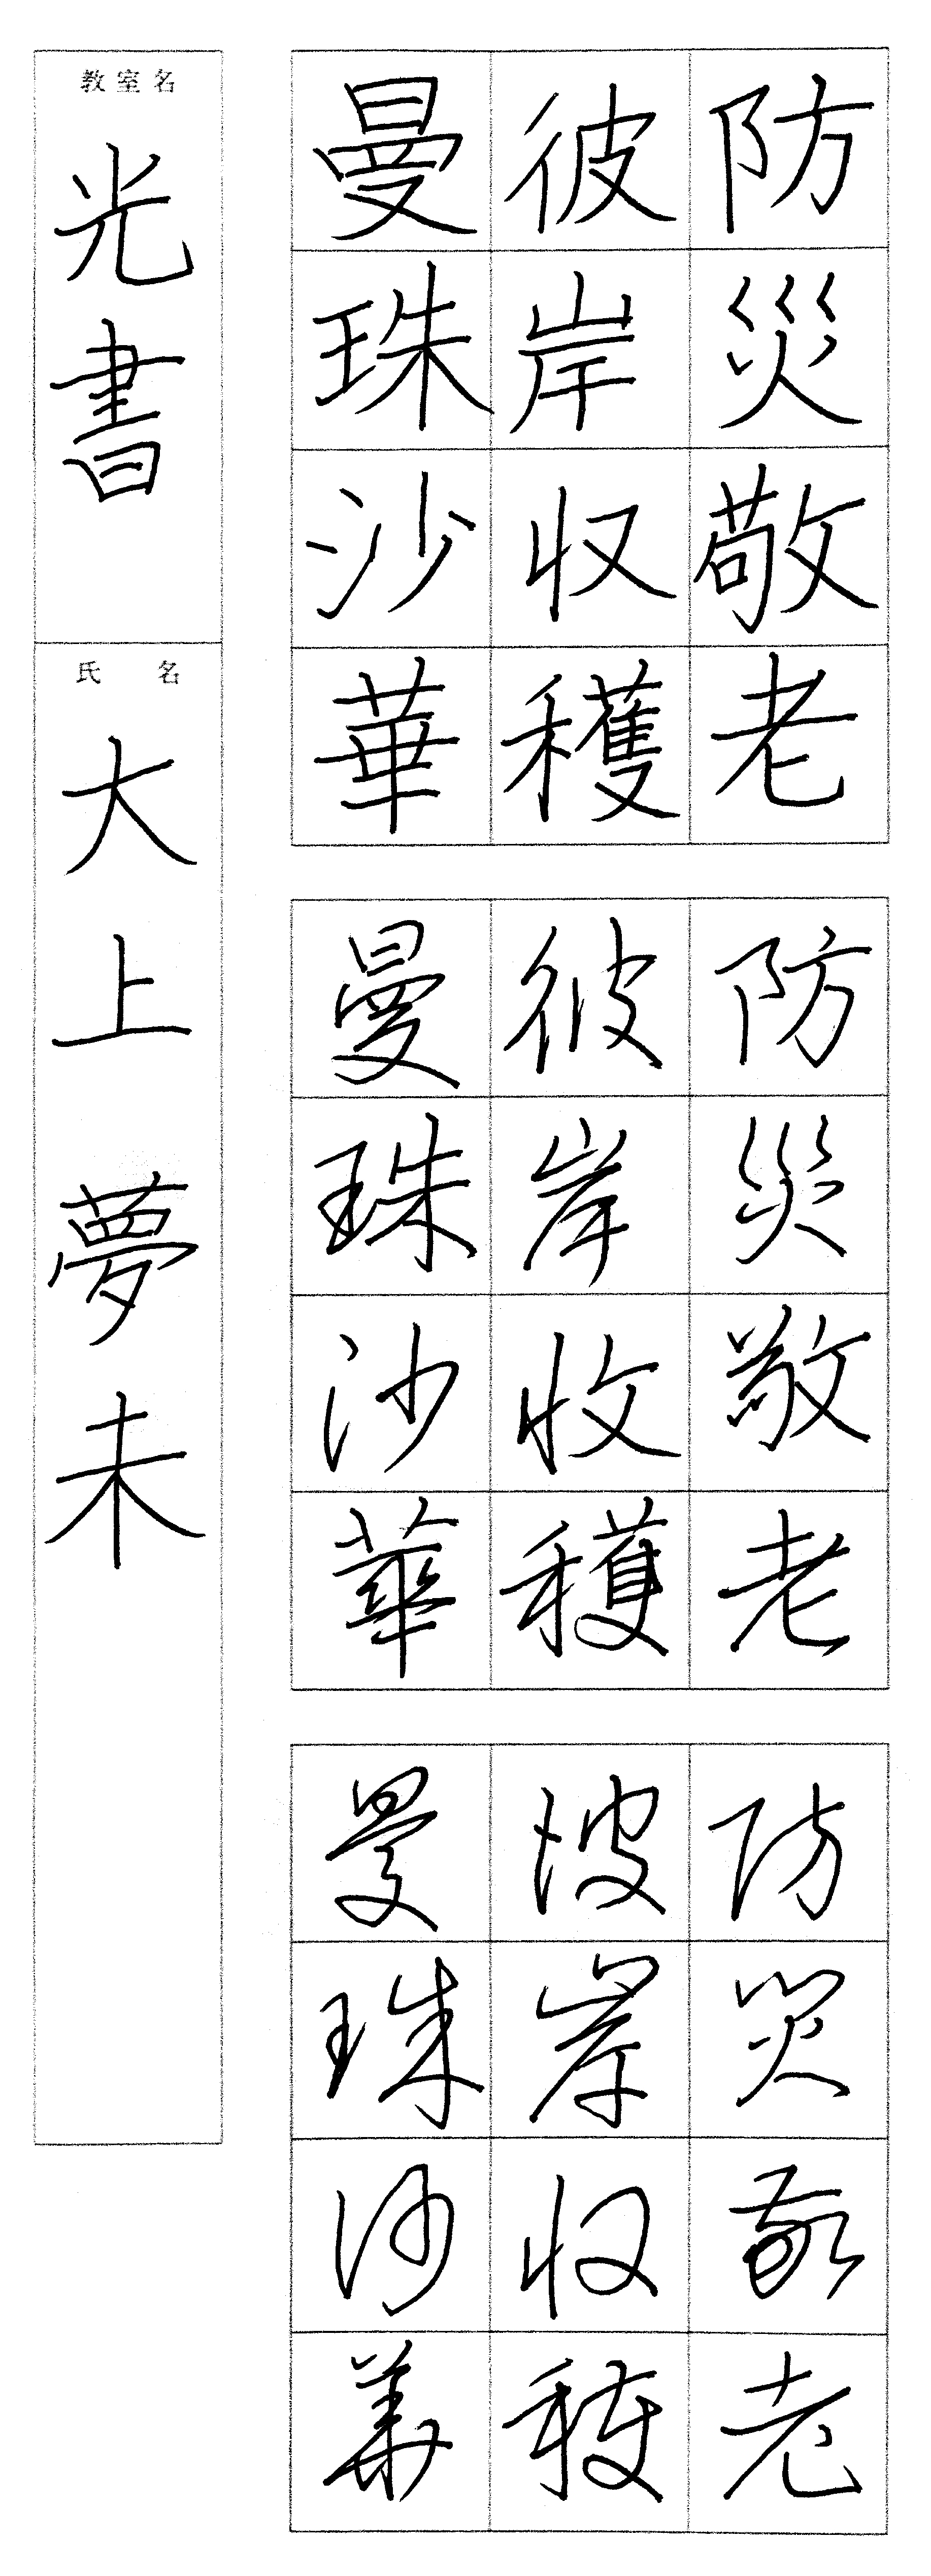 防災敬老
彼岸収穫
曼珠沙華
防災敬老
彼岸收穫
曼珠沙華
防災敬老
彼岸収穫
曼珠沙華
教室名
光書
氏名
大上夢未